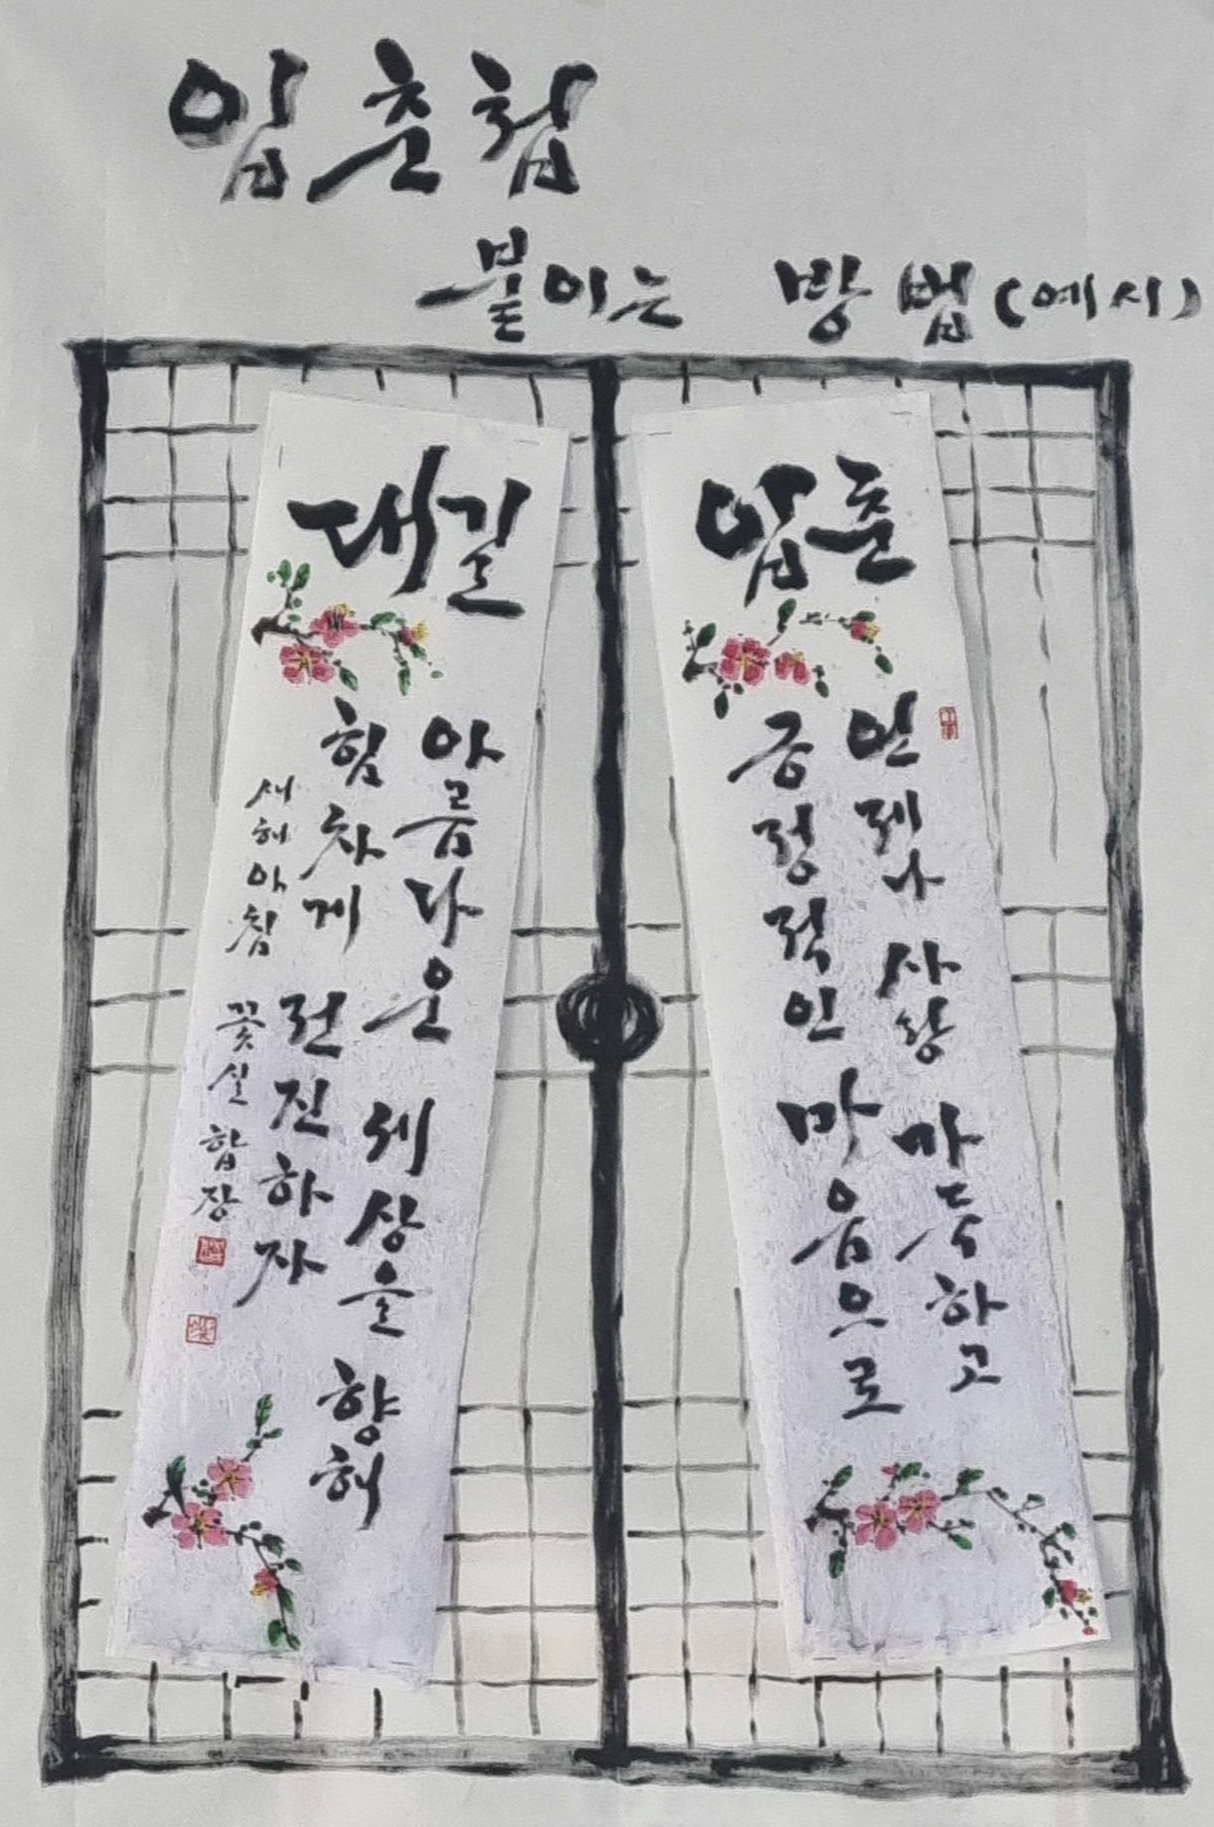 입춘첩
붙이는 방법(예시)
입춘
언제나 사랑 가득하고
긍정적인 마음으로
대길
아름다운 세상을 향해
힘차게 전진하자
새해아침 꽃실 합장